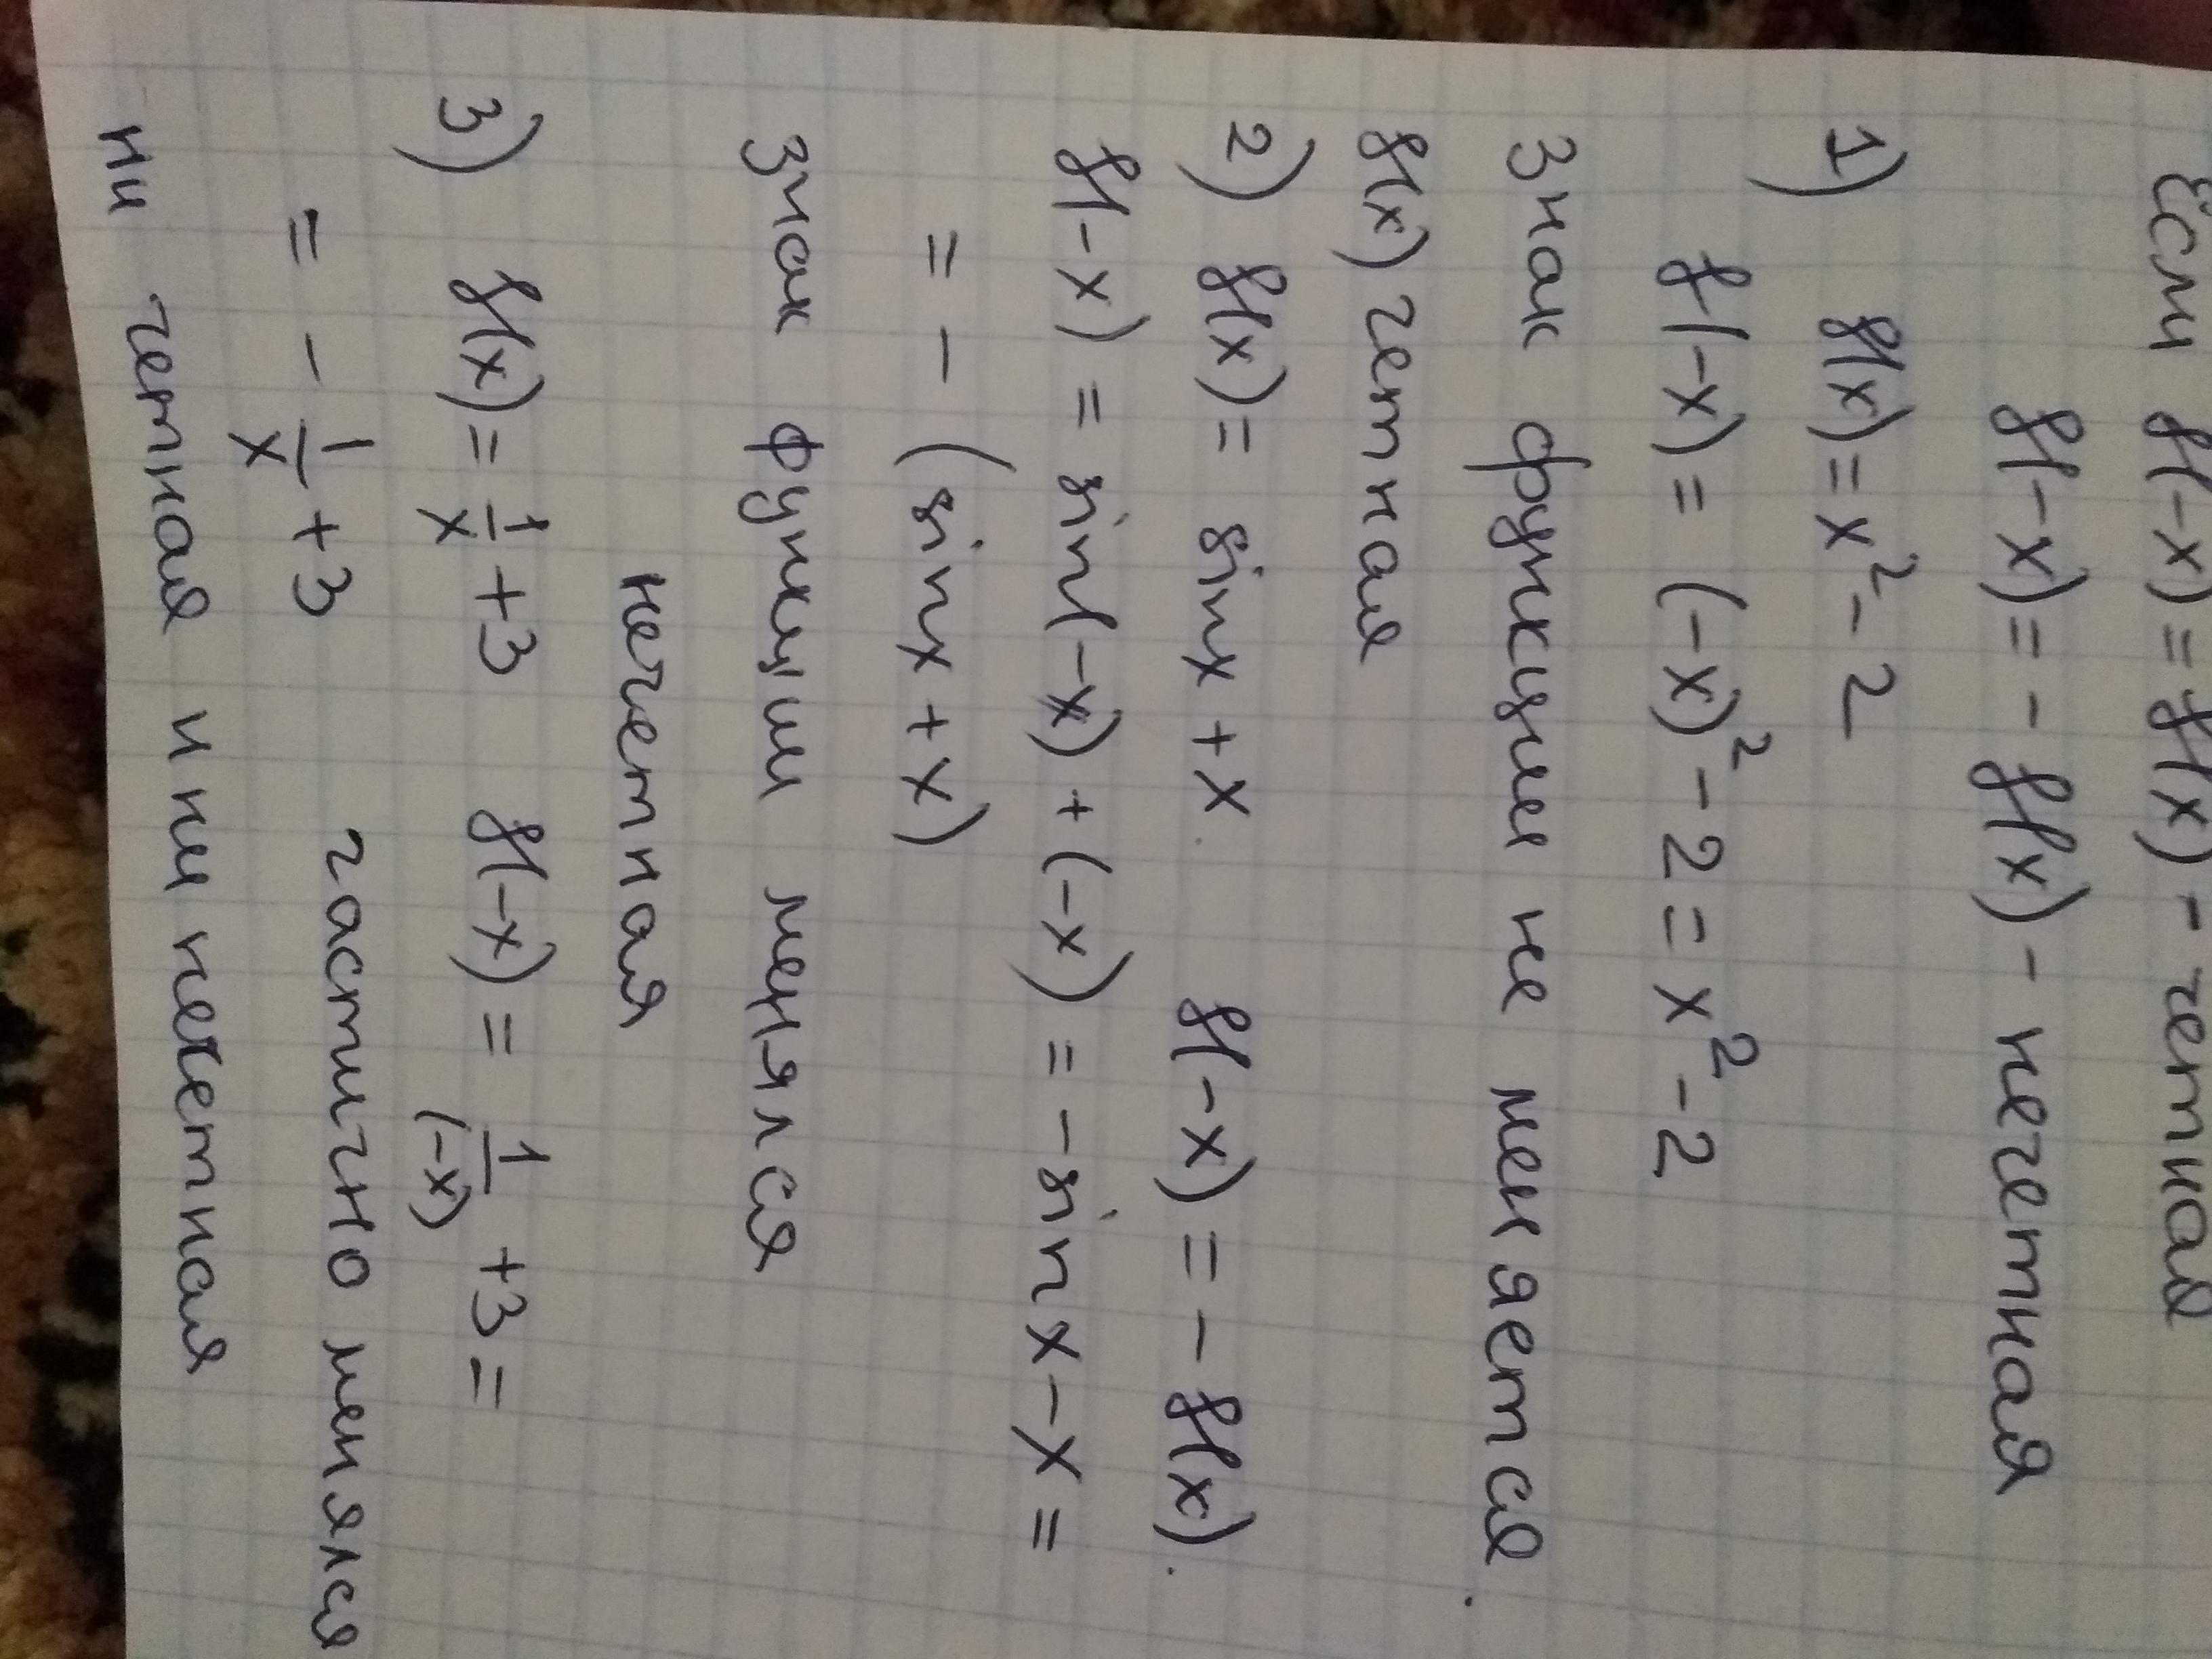 Если f(-x) = f(x) - четная
f(-x) = - f(x) - нечетная
1) f(x) = x² - 2
f(-x) = (-x)² - 2 = x² - 2
знак функции не меняется.
f(x) четная
2) f(x) = sinx + x. f(-x) = - f(x).
f(-x) = sin(-x) + (-x) = - sin x - x =
= - (sinx + x)
знак функции менялся
нечетная
3) f(x) = 1/x + 3 f(-x) = 1/(-x) + 3 =
= - 1/x + 3 частично менялся
ни четная и ни нечетная